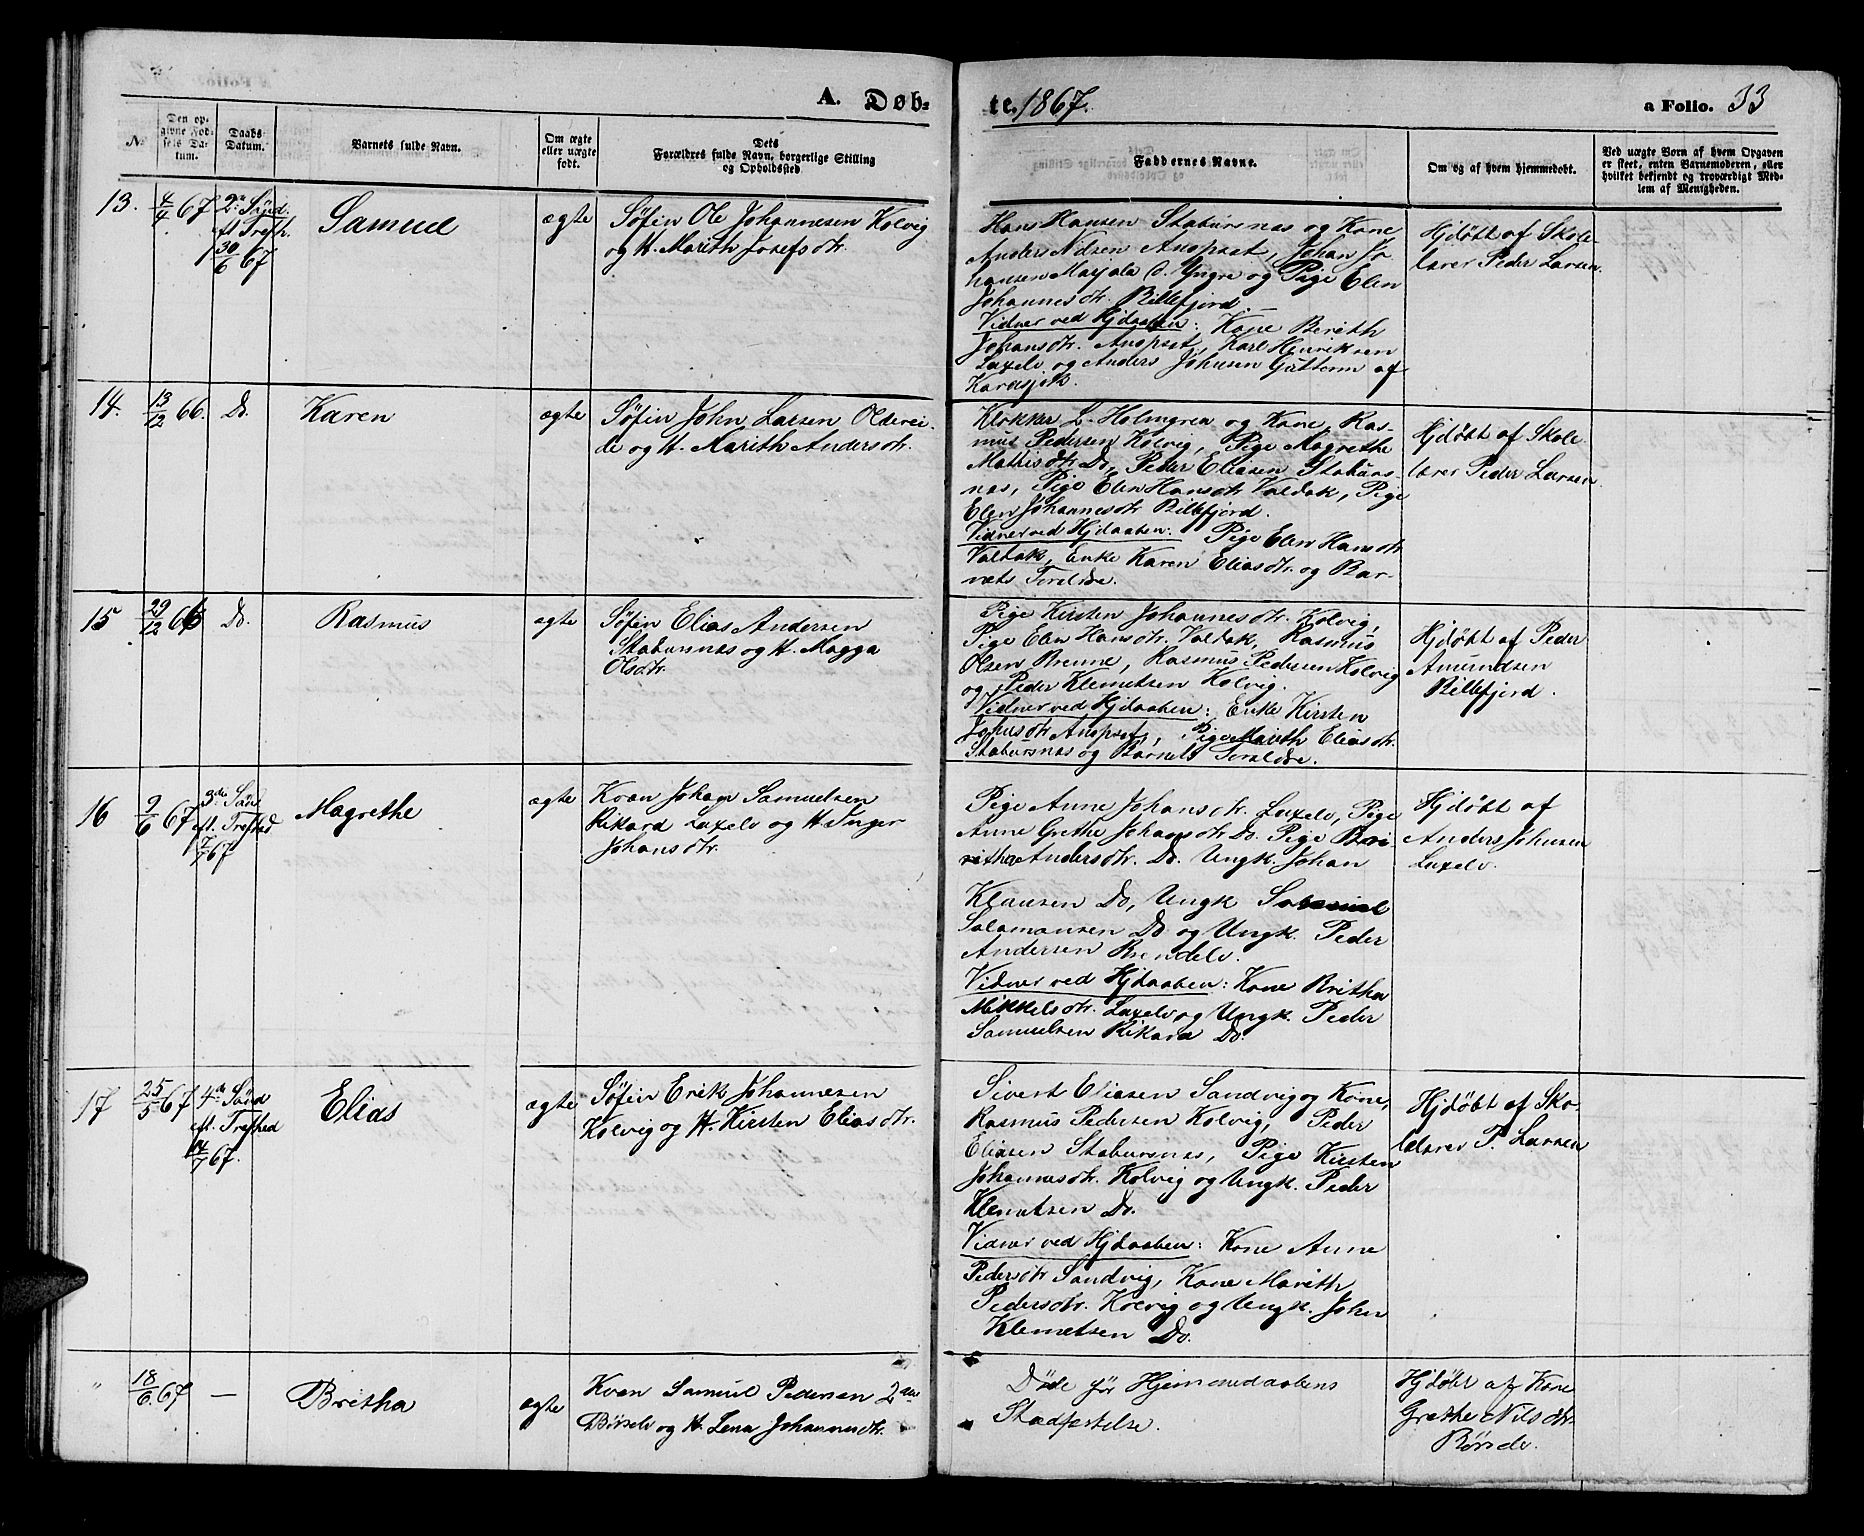 A. Døb-
te. 1867.
a Folio. 33
No.
Den op-
givne Fød-
sels Da-
tum.
Daabs-
Datum.
Barnets fulde Navn.
Om ægte
eller uægte
født.
Dets
Forældres fulde Navn, borgerlige Stilling
og Opholdssted.
Faddernes Navne.
Om og af hvem hjemmedøbt.
Ved uægte Børn af hvem Opgaven
er skeet, enten Barnemoderen, eller
hvilket bekjendt og troværdigt Med-
lem af Menigheden.
13.
4/4 67
2n Sönd.
eft Trefh.
30/6 67
Samuel
ægte
Söfin Ole Johannesen Kolvig
og H. Marith Josefsdtr.
Hans Hansen Stabursnæs og Kone
Anders Nilsen Anopset, Johan Jo
hansen Maryale d. Yngre og Pige Elen
Johannesdtr. Billefjord
Vidner ved Hjdaaben: Kone Berith
Johansdtr. Anopset, Karl Henriksen
Laxelv og Anders Johnsen Guttorm af
Karasjok.
Hjdøbt af Skole-
lærer Peder Larsen.
14.
13/12 66.
Do.
Karen
ægte
Söfin John Larsen Olderei-
de og H. Marith Andersdtr.
Klokker L. Holmgren og Kone, Ras-
mus Pedersen Kolvig, Pige Magrethe
Mathisdtr Do, Peder Eliasen Staburs-
næs, Pige Elen Hansdtr Valdak, Pige
Elen Johannesdtr Billefjord.
Vidner ved Hjdaaben: Pige Elen Hansdtr
Valdak, Enke Karen Eliasdtr. og Bar-
nets Forældre.
Hjdøbt af Skole
lærer Peder Larsen.
15
29/12 66
Do.
Rasmus
ægte
Söfin Elias Andersen
Stabursnæs og H. Magga
Olsdtr.
Pige Kirsten Johannesdtr. Kolvig,
Pige Elen Hansdtr. Valdak, Rasmus
Olsen Brenne, Rasmus Pedersen Kolvig
og Peder Klemetsen Kolvig.
Vidner ved Hjdaaben: Enke Kirsten
Johnsdtr Anopset, Pige Marith Eliasdtr.
Stabursnæs og Barnets Forældre.
Hjdøbt af Peder
Amundsen
Billefjord.
16
2/6 67
3de Sön
eft. Trefhed
7/7 67
Magrethe
ægte
Kvæn Johan Samuelsen
Rikard Laxelv og H. Inger
Johansdtr.
Pige Anne Johansdtr. Laxelv, Pige
Anne Grethe Johansdtr Do. Pige Beri
ritha Andersdtr. Do. Ungk. Johan
Klausen Do, Ungk
Salamonsen Do og Ungk. Peder
Andersen Brendelv.
Vidner ved Hjdaaben: Kone Britha
Mikkelsdtr. Laxelv og Ungk. Peder
Samuelsen Rikard Do.
Hjdøbt af
Anders Johnsen
Laxelv.
17
25/5 67
4de Sönd
eft. Trefhed
14/7 67.
Elias
ægte
Söfin Erik Johannesen
Kolvig og H. Kirsten Eliasdtr.
Sivert Eliasen Sandvig og Kone,
Rasmus Pedersen Kolvig, Peder
Eliasen Stabursnæs, Pige Kirsten
Johannesdtr. Kolvig og Ungk. Peder
Klemetsen Do.
Vidner ved Hjdaaben: Kone Anne
Pedersdtr Sandvig, Kone Marith
Pedersdtr. Kolvig og Ungk. John
Klemetsen Do.
Hjdøbt af Sko-
lelærer P. Larsen
"
18/6 67
—
Britha
ægte
Kvæn Samuel Pedersen 2den
Börselv og H. Lena Johannesdtr.
Döde för Hjemmedaabens
Stadfæstelse.
Hjdøbt af Kone
Grethe Nilsdtr.
Börselv.